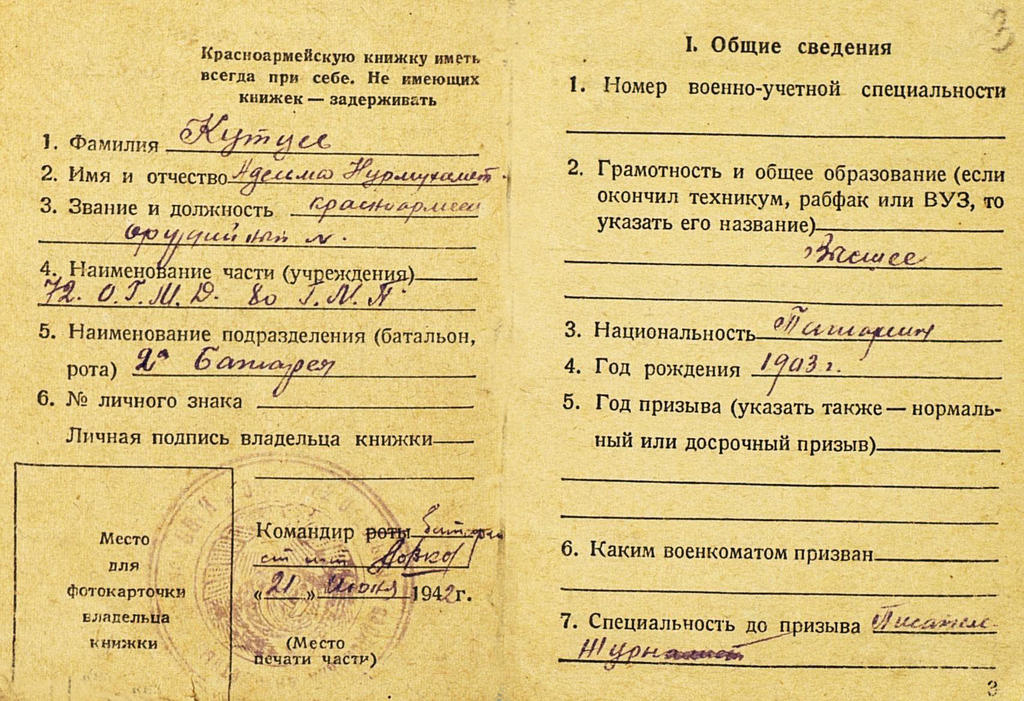 Красноармейскую книжку иметь
всегда при себе. Не имеющих
книжек — задерживать
1. Фамилия Кутуев
2. Имя и отчество Адельша Нурмухамет.
3. Звание и должность красноармеец
орудийный №.
4. Наименование части (учреждения)
72. О.Г.М.Д. 80 Г.М.П.
5. Наименование подразделения (батальон,
рота) 2я Батарея
6. № личного знака
Личная подпись владельца книжки
Место
для
фотокарточки
владельца
книжки
Командир роты батареи
ст
„21„ июня 1942 г.
(Место
печати части)
3
I. Общие сведения
1. Номер военно-учетной специальности
2. Грамотность и общее образование (если
окончил техникум, рабфак или ВУЗ, то
указать его название)
Высшее
3. Национальность Татарин
4. Год рождения 1903 г.
5. Год призыва (указать также — нормаль-
ный или досрочный призыв)
6. Каким военкоматом призван
7. Специальность до призыва Писатель
Журналист
3